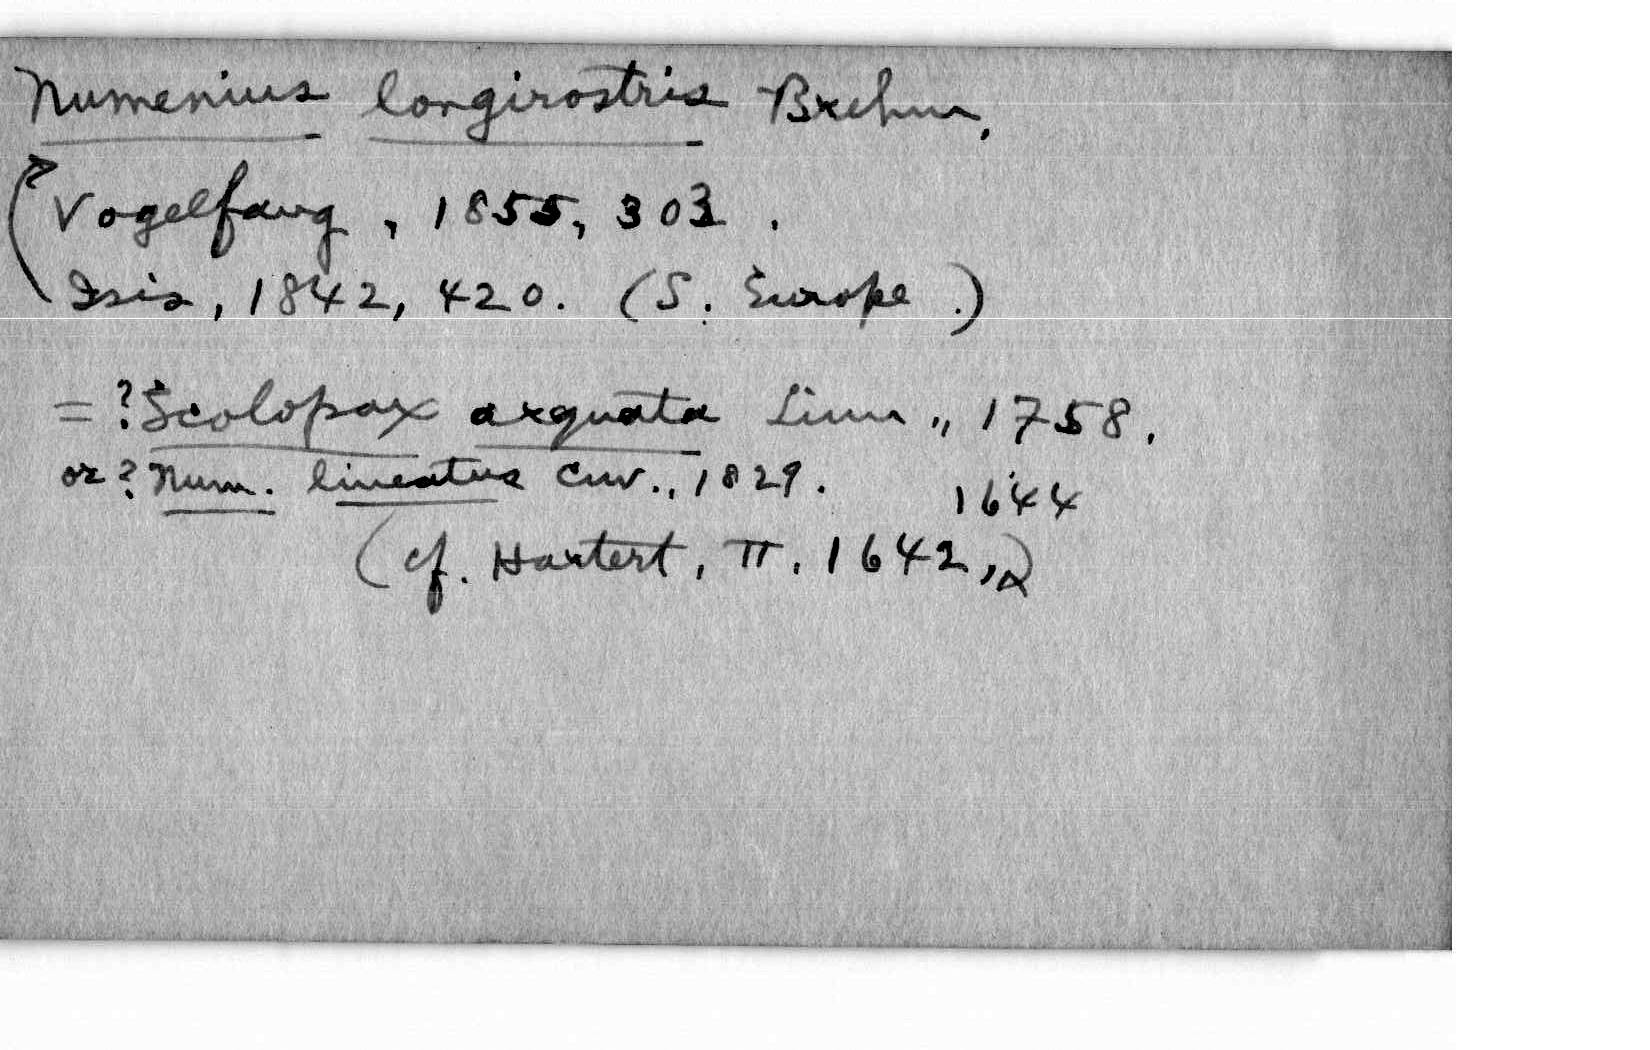 Numenius longirostris Brehm,
Vogelfang, 1855, 303.
Isis, 1842, 420. (S. Europe.)
=? Scolopax arquata Linn., 1758.
or? Num. lineatus Cuv., 1829.
1644
(cf. Hartert, II, 1642,)